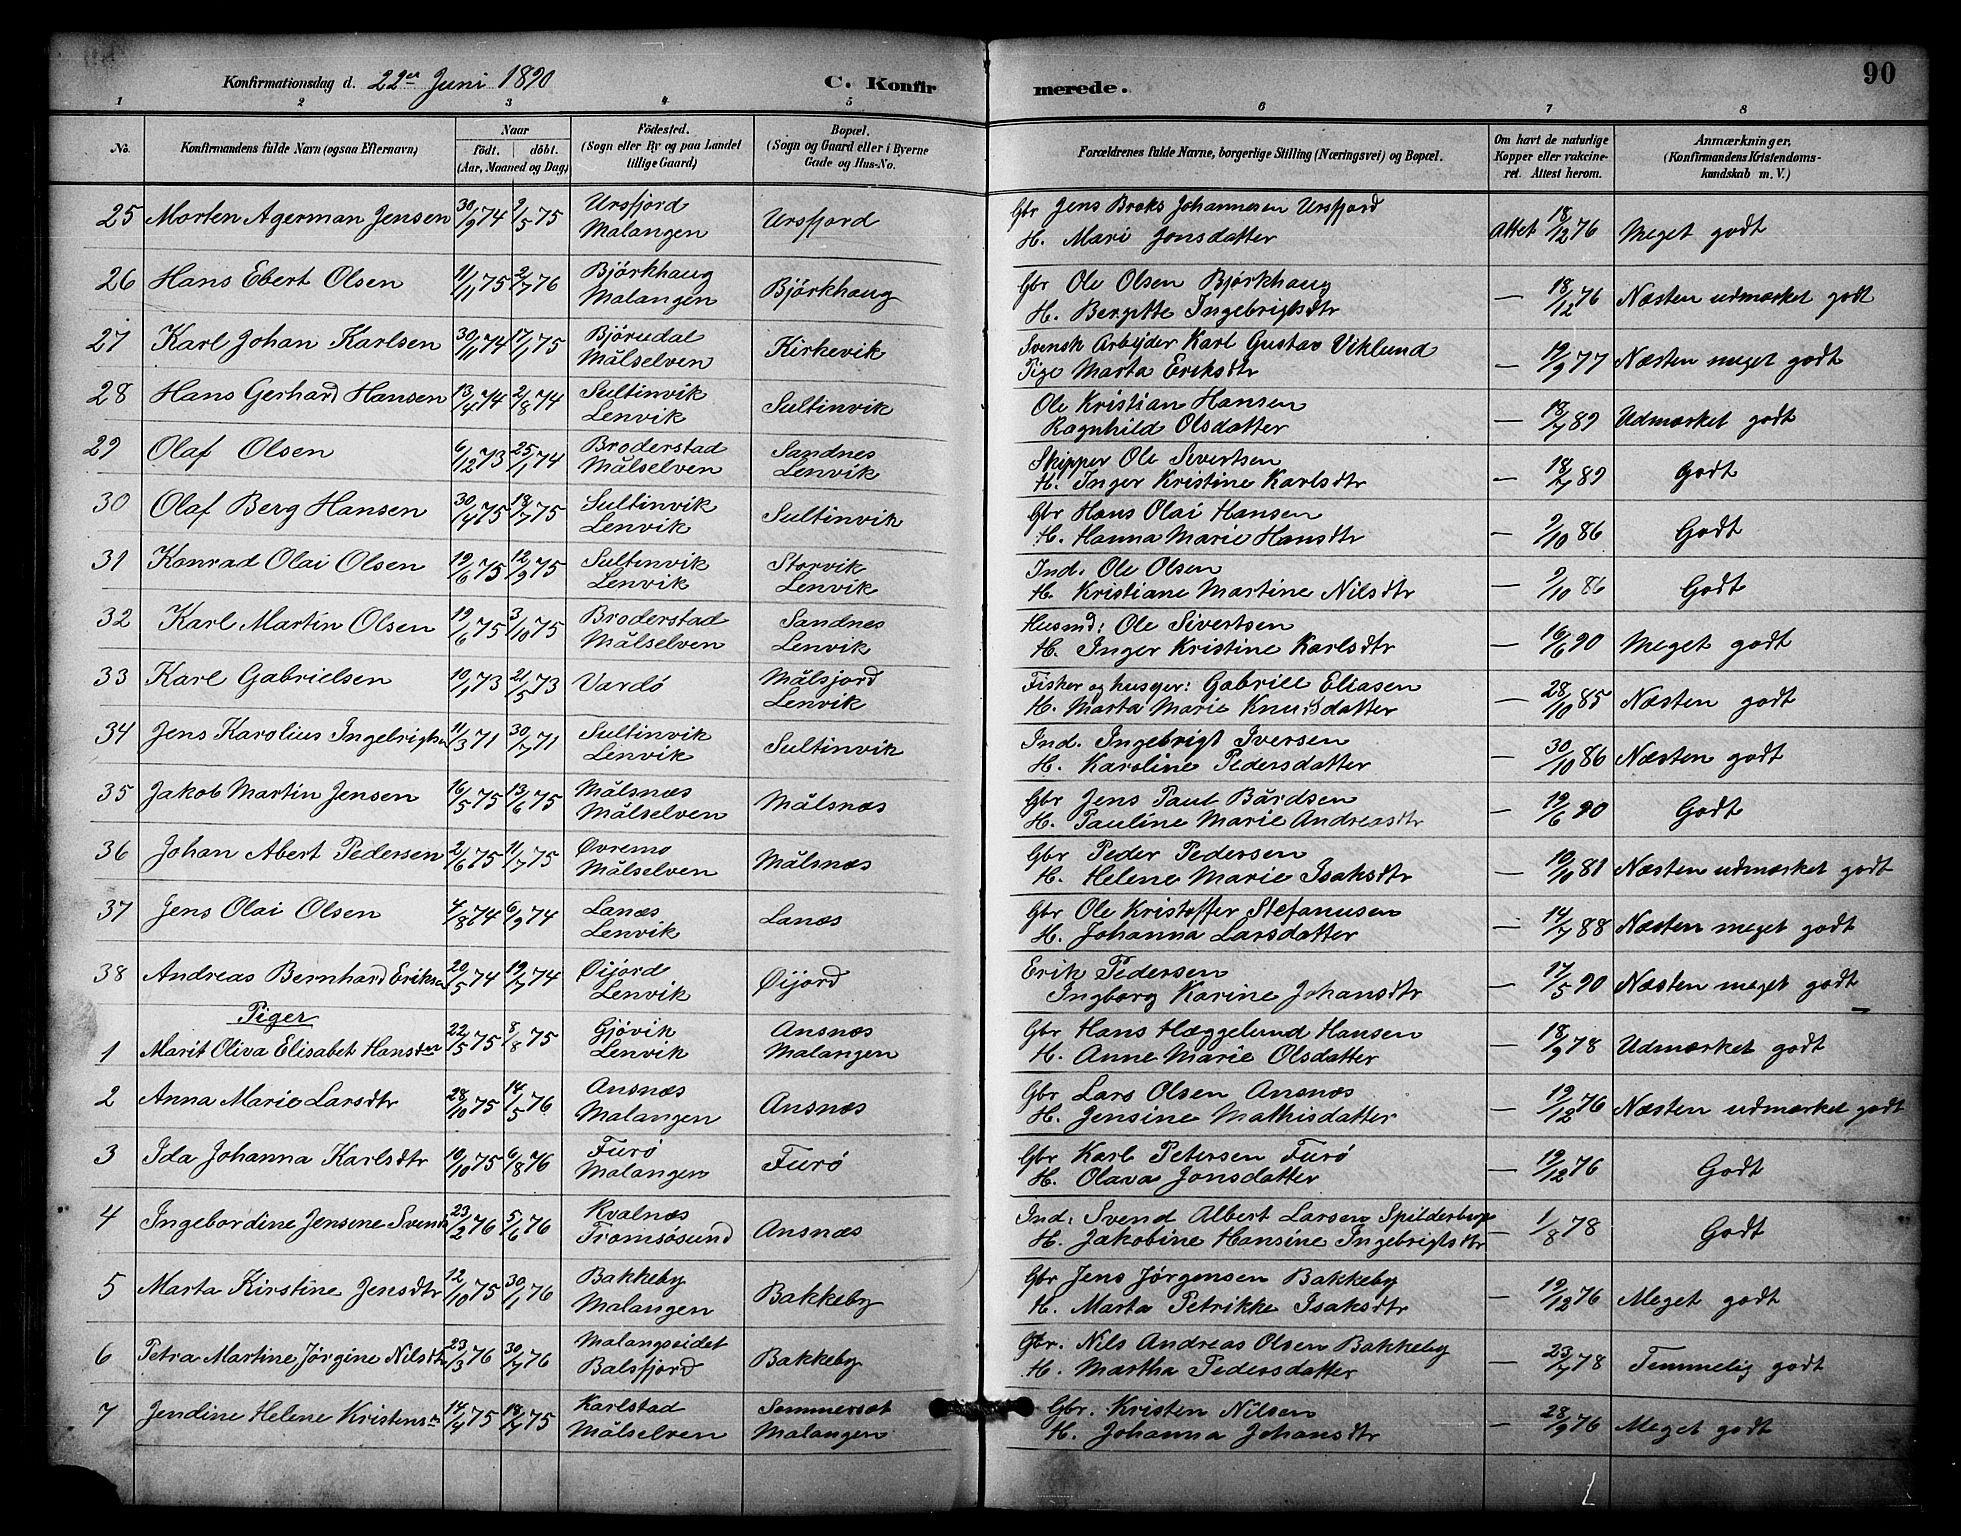 Konfirmationsdag d. 22en Juni 1890 C. Konfirmerede. 90
1 2 3 4 5 6 7 8
No. Konfirmandens fulde Navn (ogsaa Efternavn) Naar födt. döbt. (Aar, Maaned og Dag) Födested. (Sogn eller By og paa Landet tillige Gaard) Bopæl. (Sogn og Gaard eller i Byerne Gade og Hus-No. Forældrenes fulde Navne, borgerlige Stilling (Næringsvei) og Bopæl. Om havt de naturlige Kopper eller vakcineret. Attest herom. Anmærkninger. (Konfirmandens Kristendomskundskab m. V.)
25 Morten Agerman Jensen 30/9 74 2/5 75 Ursfjord Malangen Ursfjord Gbr Jens Broks Johannesen Ursfjord
H. Mari Jonsdatter Attet 18/12 76 Meget godt
26 Hans Ebert Olsen 11/11 75 2/7 76 Bjørkhaug Malangen Bjørkhaug Gbr Ole Olsen Bjørkhaug
H. Bergitte Ingebrigtsdtr — 18/12 76 Næsten udmærket godt
27 Karl Johan Karlsen 30/11 74 17/1 75 Bjørudal Målselven Kirkevik Svensk Arbejder Karl Gustav Viklund
Pige Marta Eriksdtr — 19/9 77 Næsten meget godt
28 Hans Gerhard Hansen 13/4 74 2/8 74 Sultinvik Lenvik Sultinvik Ole Kristian Hansen
Ragnhild Olsdatter — 18/7 89 Udmærket godt
29 Olaf Olsen 6/12 73 25/1 74 Broderstad Målselven Sandnes Lenvik Skipper Ole Sivertsen
H. Inger Kristine Karlsdtr — 18/7 89 Godt
30 Olaf Berg Hansen 30/4 75 18/7 75 Sultinvik Lenvik Sultinvik Gbr Hans Olai Hansen
H. Hanna Marie Hansdtr — 2/10 86 Godt
31 Konrad Olai Olsen 19/6 75 12/9 75 Sultinvik Lenvik Storvik Lenvik Ind. Ole Olsen
H. Kristiane Martine Nilsdtr — 2/10 86 Godt
32 Karl Martin Olsen 19/6 75 3/10 75 Broderstad Målselven Sandnes Lenvik Husmd: Ole Sivertsen
H. Inger Kristine Karlsdtr — 16/6 90 Meget godt
33 Karl Gabrielsen 10/1 73 21/5 73 Vardö Målsjord Lenvik Fisker og husejer: Gabriel Eliasen
H. Marta Marie Knutsdatter — 28/10 85 Næsten godt
34 Jens Karolius Ingebrigtsn 11/3 71 30/7 71 Sultinvik Lenvik Sultinvik Ind. Ingebrigt Iversen
H. Karoline Pedersdatter — 30/10 86 Næsten godt
35 Jakob Martin Jensen 16/5 75 13/6 75 Målsnæs Målselven Målsnæs Gbr Jens Paul Bårdsen
H. Pauline Marie Andreasdtr — 19/6 90 Godt
36 Johan Abert Pedersen 2/6 75 11/7 75 Øvremo Målselven Målsnæs Gbr Peder Pedersen
H. Helene Marie Isaksdtr — 10/10 81 Næsten udmærket godt
37 Jens Olai Olsen 4/8 74 6/9 74 Lanæs Lenvik Lanæs Gbr Ole Kristoffer Stefanusen
H. Johanna Larsdatter — 14/7 88 Næsten meget godt
38 Andreas Bernhard Eriksn 20/5 74 19/7 74 Øijord Lenvik Øijord Erik Pedersen
Ingborg Karine Johansdtr — 17/5 90 Næsten meget godt
Piger
1 Marit Oliva Elisabet Hansdtr 22/5 75 8/8 75 Gjøvik Lenvik Ansnæs Malangen Gbr Hans Hæggelund Hansen
H. Anne Marie Olsdatter — 18/9 78 Udmærket godt
2 Anna Marie Larsdtr 28/10 75 14/5 76 Ansnæs Malangen Ansnæs Gbr Lars Olsen Ansnæs
H. Jensine Mathisdatter — 19/12 76 Næsten udmærket godt
3 Ida Johanna Karlsdtr 19/10 75 6/8 76 Furø Malangen Furø Gbr Karl Petersen Furø
H. Olava Jonsdatter — 19/12 76 Godt
4 Ingebordine Jensine Svends 23/2 76 5/6 76 Kvalnæs Tromsøsund Ansnæs Ind: Svend Albert Larsen Spilderberg
H. Jakobine Hansine Ingebrigtsdtr — 1/8 78 Godt
5 Marta Kirstine Jensdtr 12/10 75 30/1 76 Bakkeby Malangen Bakkeby Gbr Jens Jørgensen Bakkeby
H. Marta Petrikke Isaksdtr — 19/12 76 Meget godt
6 Petra Martine Jørgine Nilsdtr 23/3 76 30/7 76 Malangseidet Balsfjord Bakkeby Gbr. Nils Andreas Olsen Bakkeby
H. Martha Pedersdatter — 23/7 78 Temmelig godt
7 Jendine Helene Kristensn 14/4 75 18/7 75 Karlstad Målselven Sommerset Malangen Gbr. Kristen Nilsen
H. Johanna Johansdtr — 28/9 76 Meget godt